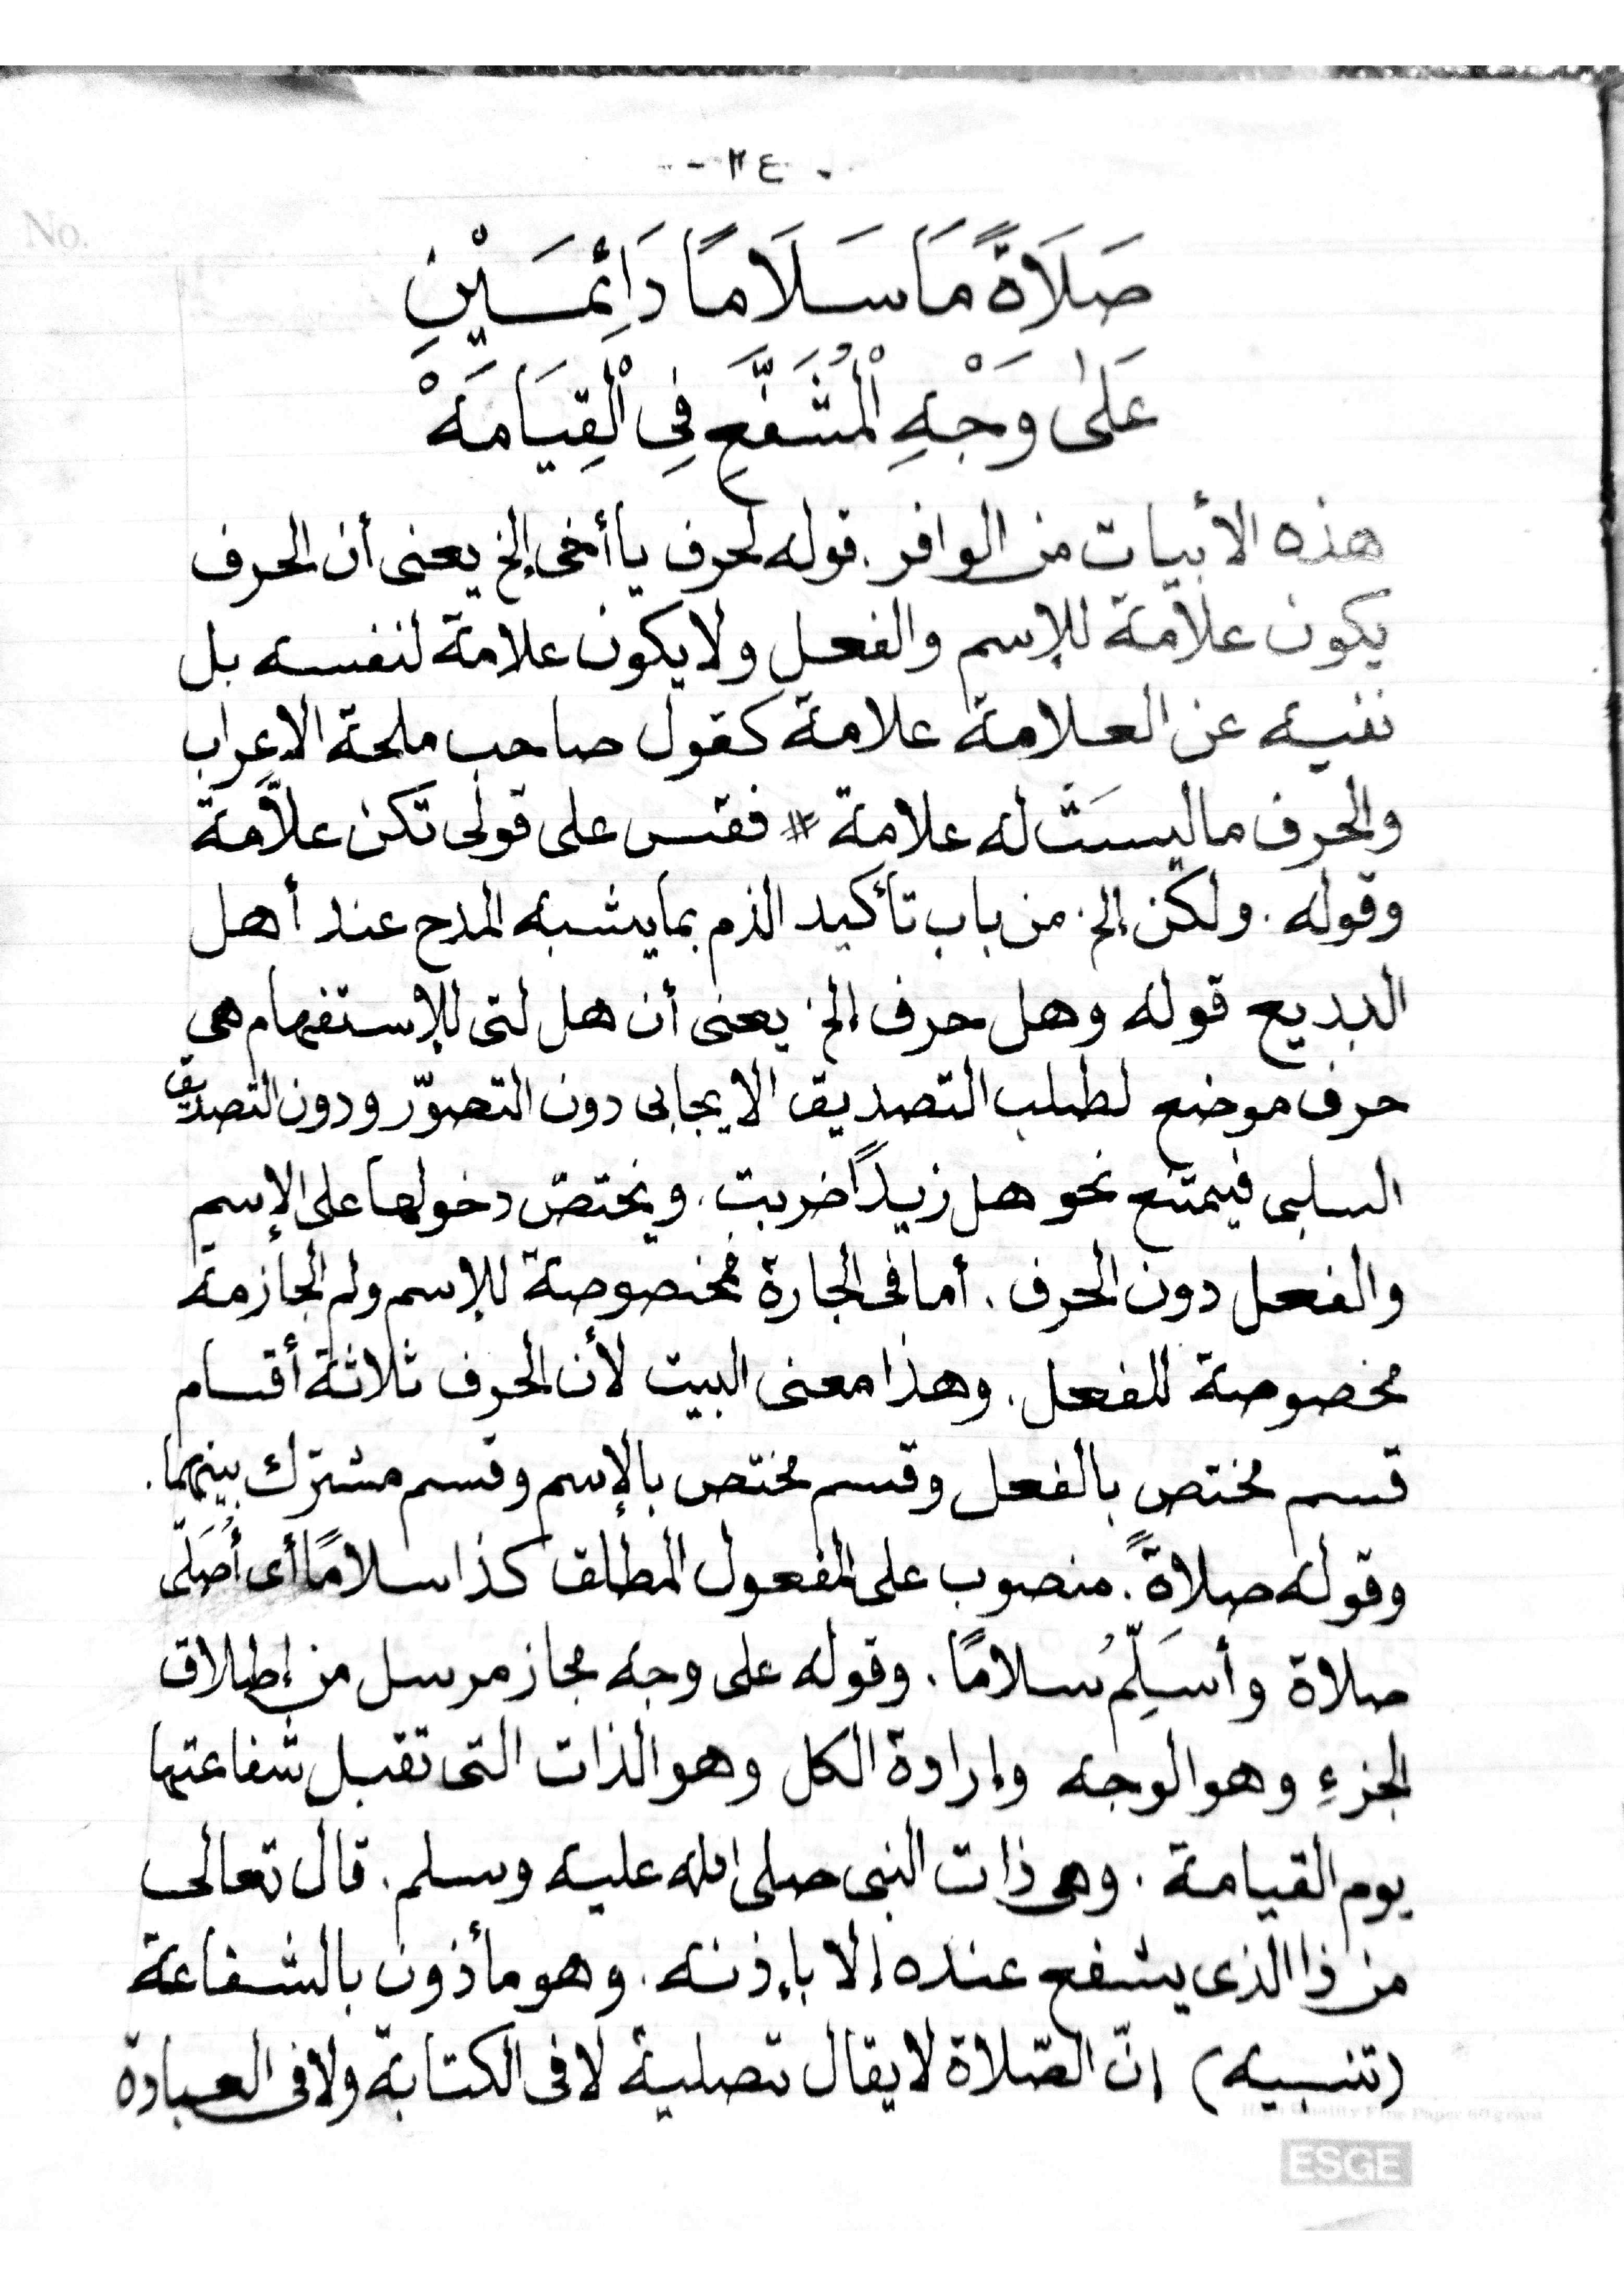 - ٢٤ -
No.
صَلَاةً مَا سَلَامًا دَائِمَيْنِ
عَلَى وَجْهِ الْمُشَفَّعِ فِي الْقِيَامَةْ
هذه الأبيات من الوافر. قوله لحرف يا أخى إلخ يعنى أن الحرف
يكون علامة للإسم والفعل ولا يكون علامة لنفسه بل
نفيه عن العلامة علامة كقول صاحب ملحة الإعراب
والحرف ما ليسَتْ له علامة # فقس على قولى تكن علاّمة
وقوله. ولكن إلخ. من باب تأكيد الذم بما يشبه المدح عند أهل
البديع قوله وهل حرف إلخ يعنى أن هل لتى للإستفهام هى
حرف موضع لطلب التصديق الايجابى دون التصوّر ودون التصديق
السلبى فيمتنع نحو هل زيدًا ضربت. ويختصّ دخولها على الإسم
والفعل دون الحرف. أما فى الجارة فمخصوصة للإسم ولم الجازمة
مخصوصة للفعل. وهذا معنى البيت لأن الحرف ثلاثة أقسام
قسم مختص بالفعل وقسم مختص بالإسم وقسم مشترك بينهما.
وقوله صلاةً. منصوب على المفعول المطلق كذا سلامًا أى أُصَلّى
صلاة وأسَلِّمُ سلامًا. وقوله على وجه مجاز مرسل من إطلاق
الجزءِ وهو الوجه وإرادة الكل وهو الذات التى تقبل شفاعتها
يوم القيامة. وهى ذات النبى صلى الله عليه وسلم. قال تعالى
من ذا الذى يشفع عنده إلا بإذنه. وهو مأذون بالشفاعة
(تنبيه) إنّ الصّلاة لا يقال تصلية لا فى الكتابة ولا فى العبادة
ESGE